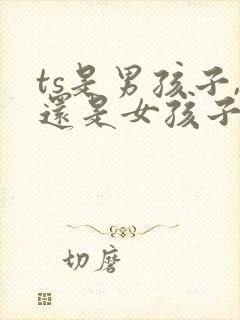 ts是男孩子,
還是女孩子
切磨